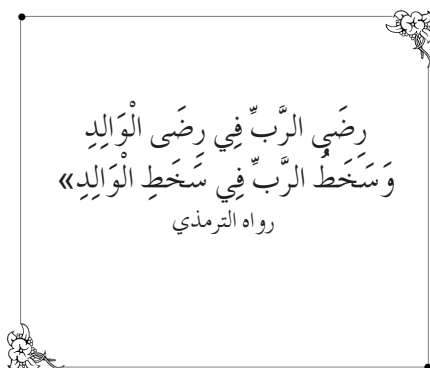 رِضَى الرَّبِّ فِي رِضَى الْوَالِدِ
وَسَخَطُ الرَّبِّ فِي سَخَطِ الْوَالِدِ»
رواه الترمذي